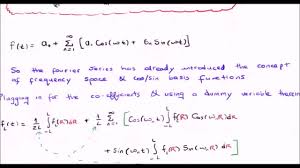 f(t) = a₀ + ∑ₙ₌₁^∞ [aₙ Cos(ωₙt) + bₙ Sin(ωₙt)]
So the fourier Series has already introduced the concept
of frequency space & cos/sin basis functions
Plugging in for the co-efficients & using a dummy variable therein
f_L(t) = 1/2L ∫₋L^L f_L(R) dR + ∑ₙ₌₁^∞ 1/L [Cos(ωₙt) ∫₋L^L f_L(R) Cos(ωₙR) dR
+ Sin(ωₙt) ∫₋L^L f_L(R) Sin(ωₙR) dR]